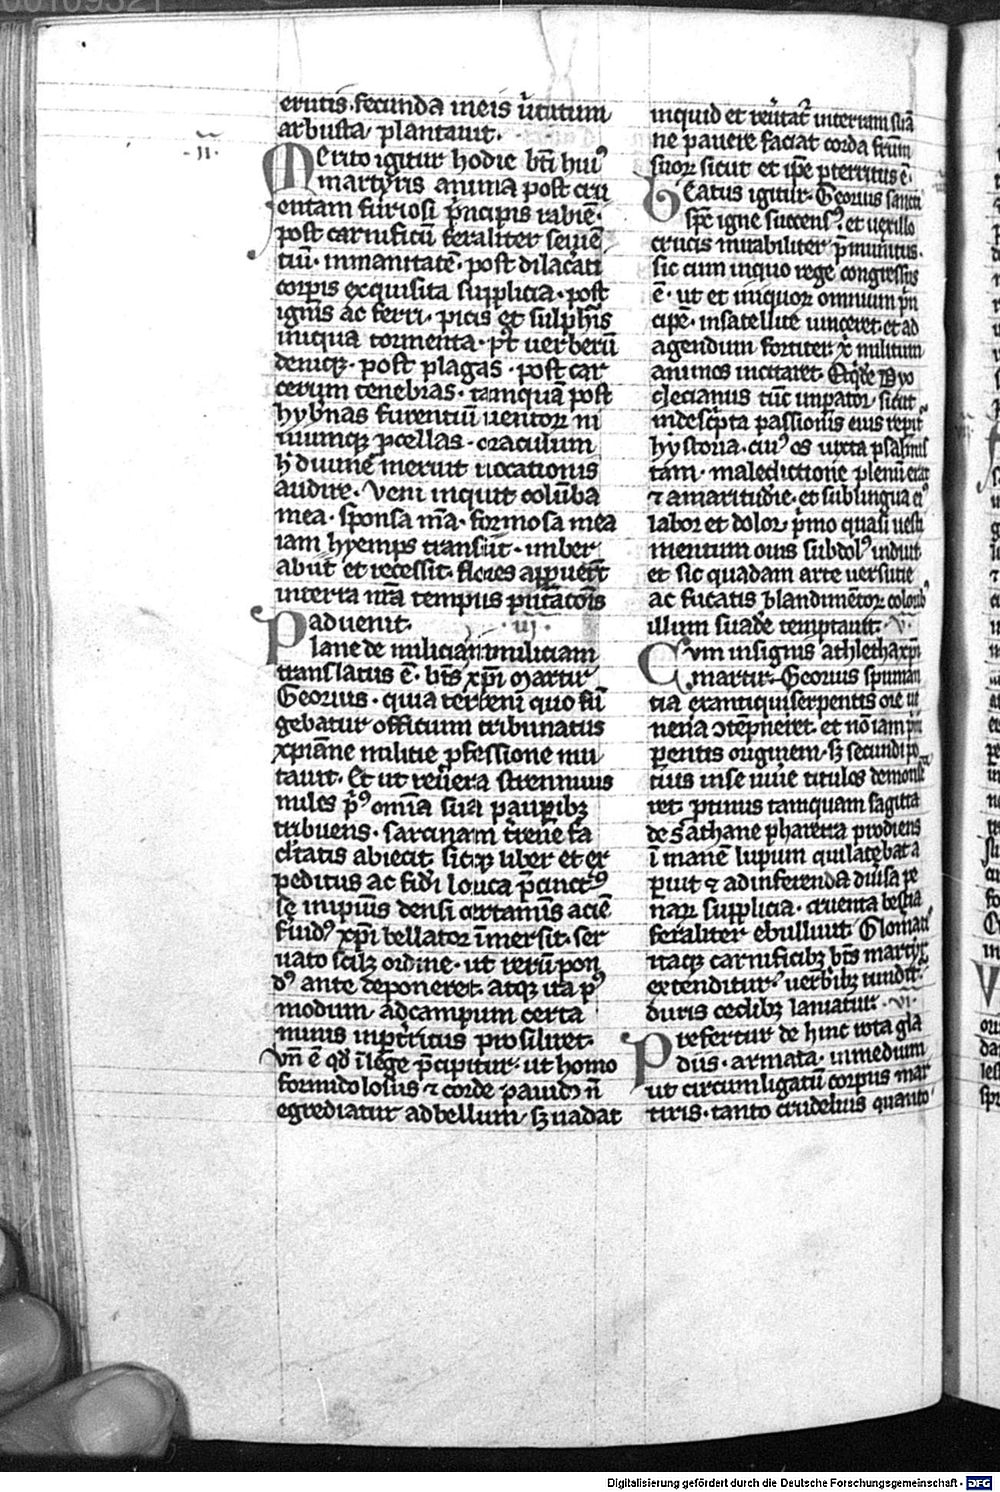 erutis. fecunda in eis ūtutum
arbusta plantauit.
.ii.
Merito igitur hodie bti huiꝰ
martyris anima post cru
entam furiosi pncipis rabiē.
post carnificū feraliter seuiē
tiū. inmanitatē. post dilacati
corpis exquisita supplicia. post
ignis ac ferri. picis et sulphis
iniqua tormenta. pt uerberū
deniqꝫ. post plagas. post car
cerum tenebras. tamquā post
hybnas furentiū uentoꝝ ni
uiumqꝫ pcellas. oraculum
h diuine meruit uocationis
audire. Veni inquit colūba
mea. sponsa mā. formosa mea
iam hyemps transiit. imber
abiit et recessit. flores appuert
in terra nrā tempus putatois
aduenit. .iii.
Plane de milicia in miliciam
translatus ē. bts xpi martir
Georius. quia terreni quo fū
gebatur officium tribunatus
xpiane militie pfessione mu
tauit. Et ut reuera strennuus
miles pꝰ omia sua paupibꝫ
tribuens. sarcinam trene fa
cltatis abiecit. sicqꝫ liber et ex
peditus ac fidi lorica pcinctꝰ
se inpuis densi certamis aciē
fuidꝰ xpi bellator īmersit. ser
uato scilꝫ ordine. ut rerū pon
dꝰ ante deponeret. atqꝫ ita pꝰ
modum ad campum certa
minis inptritus prosiliret.
Vn̄ ē qd ī lege pcipitur. ut homo
formidolosus ⁊ corde pauidꝰ n̄
egrediatur ad bellum. sꝫ uadat
inquid et reutat in terram suā
ne pauere faciat corda frum
suoꝝ sicut et ipe pterritus ē.
Beatus igitur. Georius sancti
spc igne succensꝰ. et uexillo
crucis mirabiliter pmunitus.
sic cum iniquo rege congressus
ē. ut et iniquoꝝ omnium pn
cipē. in satellite uinceret. et ad
agendum fortiter xp militum
animos incitaret. Eqde Dyo
clecianus tūc impator. sicut
in descpta passionis eius repit
hystoria. cuiꝰ os iuxta psalmis
tam. maledictione plenū erat
⁊ amaritudie. et sub lingua eiꝰ
labor et dolor. pmo quasi uesti
mentum ouis subdolꝰ induit
et sic quadam arte uersutie
ac fucatis blandimētoꝝ coloribꝫ
illum suade temptauit. .v.
Cvm insignis athletha xpi
martir. Georius spuman
tia ex antiqui serpentis ore ut
nena ↄtēpneret. et nō iam pm
perentis originem. sꝫ secundi po
cius in se uiue titulos demonst
ret. ptinus tamquam sagitta
de sathane pharetra prodiens
ī manē lupum qui latebat a
puit ⁊ ad inferenda diuisa pe
naꝝ supplicia. cruenta bestia
feraliter ebulliuit. Glomati
itaqꝫ carnificibꝫ bts martyr
extenditur. uerbibꝫ tundit
duris cedibꝫ laniatur. .vi.
Prefertur de hinc rota gla
diis. armata. in medium
ut circumligatū corpus mar
tiris. tanto crudelius quanto
Digitalisierung gefördert durch die Deutsche Forschungsgemeinschaft - DFG